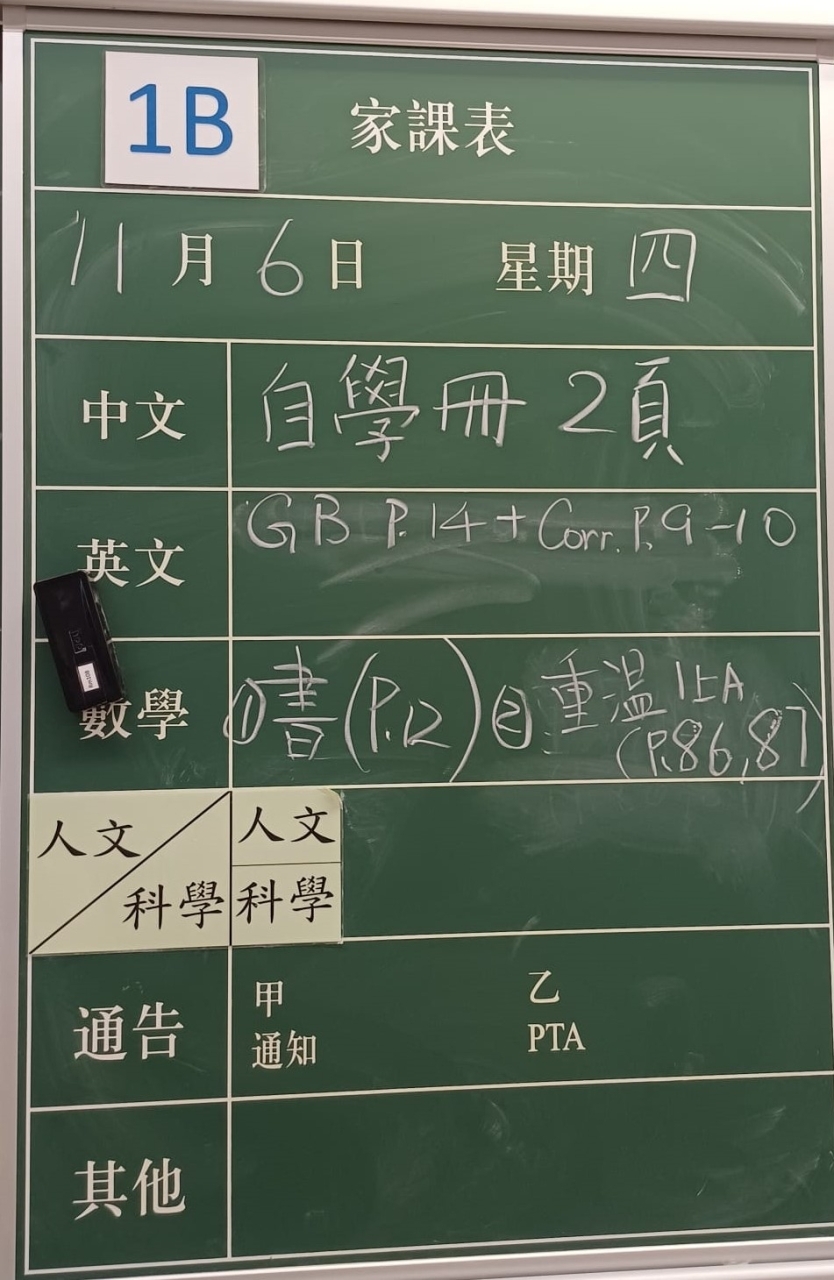 1B 家課表
11月6日 星期四
中文 自學冊 2頁
英文 GB P.14 + Corr. P.9-10
數學 ①書(P.12) ②重溫1上A
(P.86,87)
人文 人文
科學 科學
通告 甲 乙
通知 PTA
其他